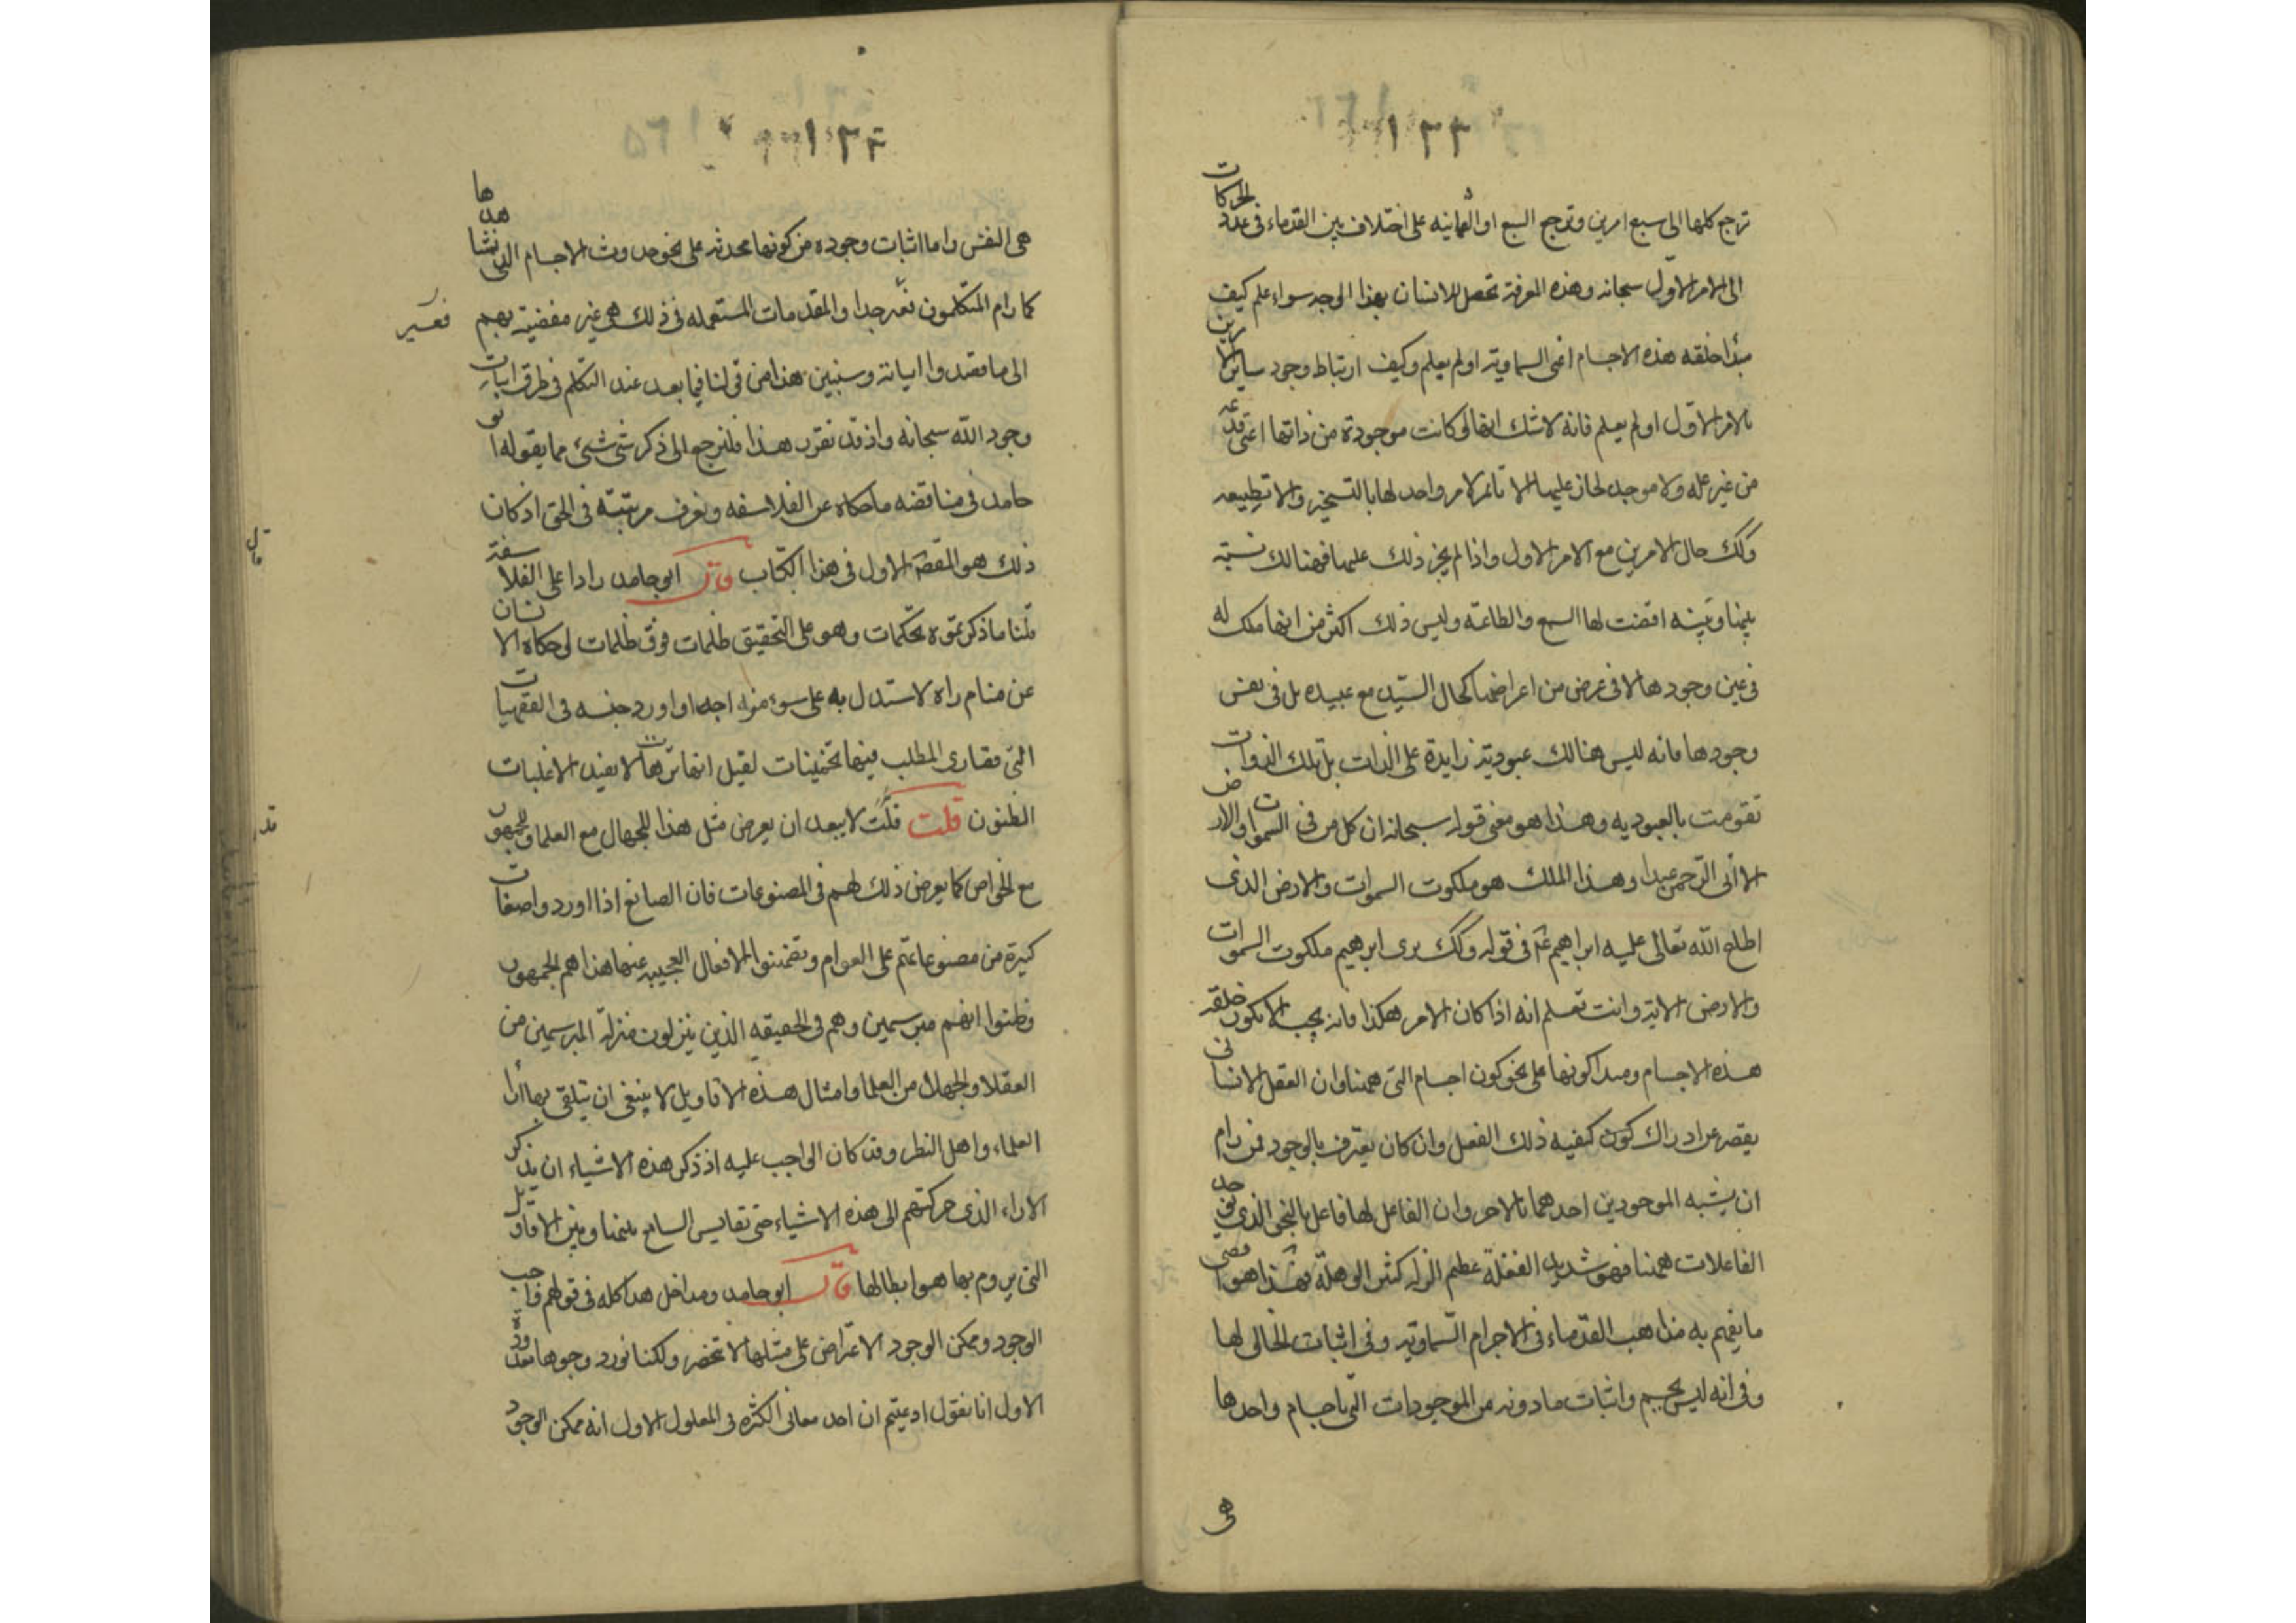 ١٢٣
ترجع كلها الى سبع امرين وترجع السبع او الثمانيه على اختلاف بين القدماء فى عدد الحركات
الى الامر الاول سبحانه وهذه المعرفة تحصل للانسان بهذا الوجه سواء علم كيف
مبدا خلقه هذه الاجسام اعنى السماوية او لم يعلم وكيف ارتباط وجود ساير الامرين
بالامر الاول او لم يعلم فانه لا شك انها لو كانت موجودة من ذاتها اعنى قديمة
من غير علة ولا موجد لجاز عليها الا تاتمر لامر واحد لها بالتسخير والا تطيعه
وكك حال الامرين مع الامر الاول واذا لم يجز ذلك عليها فهنالك نسبة
بينها وبينه اقضت لها السمع والطاعة وليس ذلك اكثر من انها ملك له
فى عين وجودها لا فى عرض من اعراضها كحال السيد مع عبيده بل فى نفس
وجودها فانه ليس هنالك عبودية زايدة على الذات بل تلك الذوات
تقومت بالعبوديه وهذا هو معنى قوله سبحانه ان كل من فى السموات والارض
الا اتى الرحمن عبدا وهذا الملك هو ملكوت السموات والارض الذى
اطلع الله تعالى عليه ابراهيم عم فى قوله وكك نرى ابرهيم ملكوت السموات
والارض الاية وانت تعلم انه اذا كان الامر هكذا فانه يجب الا يكون خلقة
هذه الاجسام ومبدا كونها على نحو كون اجسام التى ههنا وان العقل الانسانى
يقصر عن ادراك كون كيفيه ذلك الفعل وان كان يعترف بالوجود فمن رام
ان يشبه الموجودين احدهما بالاخر وان الفاعل لها فاعل بالنحو الذى توجد فى
الفاعلات ههنا فهو شديد الغفلة عظيم الزلة كثير الوهلة فهذا هو اقصى
ما يفهم به مذاهب القدماء فى الاجرام السماوية وفى اثبات الخالق لها
وفى انه ليس بجسم واثبات ما دونه من الموجودات التى باجسام واحدها
هى
١٢٤
هى النفس واما اثبات وجوده من كونها محدثه على نحو حدوث الاجسام التى نشاهدها
كما رام المتكلمون فعسر جدا والمقدمات المستعمله فى ذلك هى غير مفضية بهم
فعسير
الى ما قصدوا ابيانه وسنبين هذا من قولنا فيما بعد عند التكلم فى طرق اثبات
وجود الله سبحانه واذ قد تقرر هذا فلنرجع الى ذكر شئ شئ مما يقوله ابو
حامد فى مناقضه ما حكاه عن الفلاسفه ونعرف مرتبته فى الحق اذ كان
ذلك هو المقصد الاول فى هذا الكتاب قال ابو حامد رادا على الفلاسفة
قال
قلنا ما ذكرتموه تحكمات وهو على التحقيق ظلمات فوق ظلمات لو حكاه الانسان
عن منام راه لاستدل به على سوء مزاجه او اورد جنسه فى الفقهيات
التى قصارى المطلب فيها تخمينات لقيل انها ترهات لا يفيد الا غلبات
الظنون قلت قلت لا يبعد ان يعرض مثل هذا للجهال مع العلما وللجمهور
قد
مع الخواص كما يعرض ذلك لهم فى المصنوعات فان الصانع اذا اورد واصفات
كثيرة من مصنوعاتهم على العوام وتضمنوا الافعال العجيبه عنها هذا هم الجمهور
وظنوا انهم مبرسمين وهم فى الحقيقه الذين ينزلون منزلة المبرسمين من
العقلا والجهال من العلما وامثال هذه الاقاويل لا ينبغى ان تتلقى بها اراء
العلماء واهل النظر وقد كان الواجب عليه اذ ذكر هذه الاشياء ان يذكر
الاراء الذى حركتهم الى هذه الاشياء حتى تقايس السامع بينها وبين الاقاويل
التى يروم بها هو ابطالها قال ابو حامد ومداخل هذا كله فى قولهم واجب
الوجود وممكن الوجود الاعتراض على مثلها لا تنحصر ولكنا نورد وجوها معدودة
الاول انا نقول ادعيتم ان احد معانى الكثره فى المعلول الاول انه ممكن الوجود